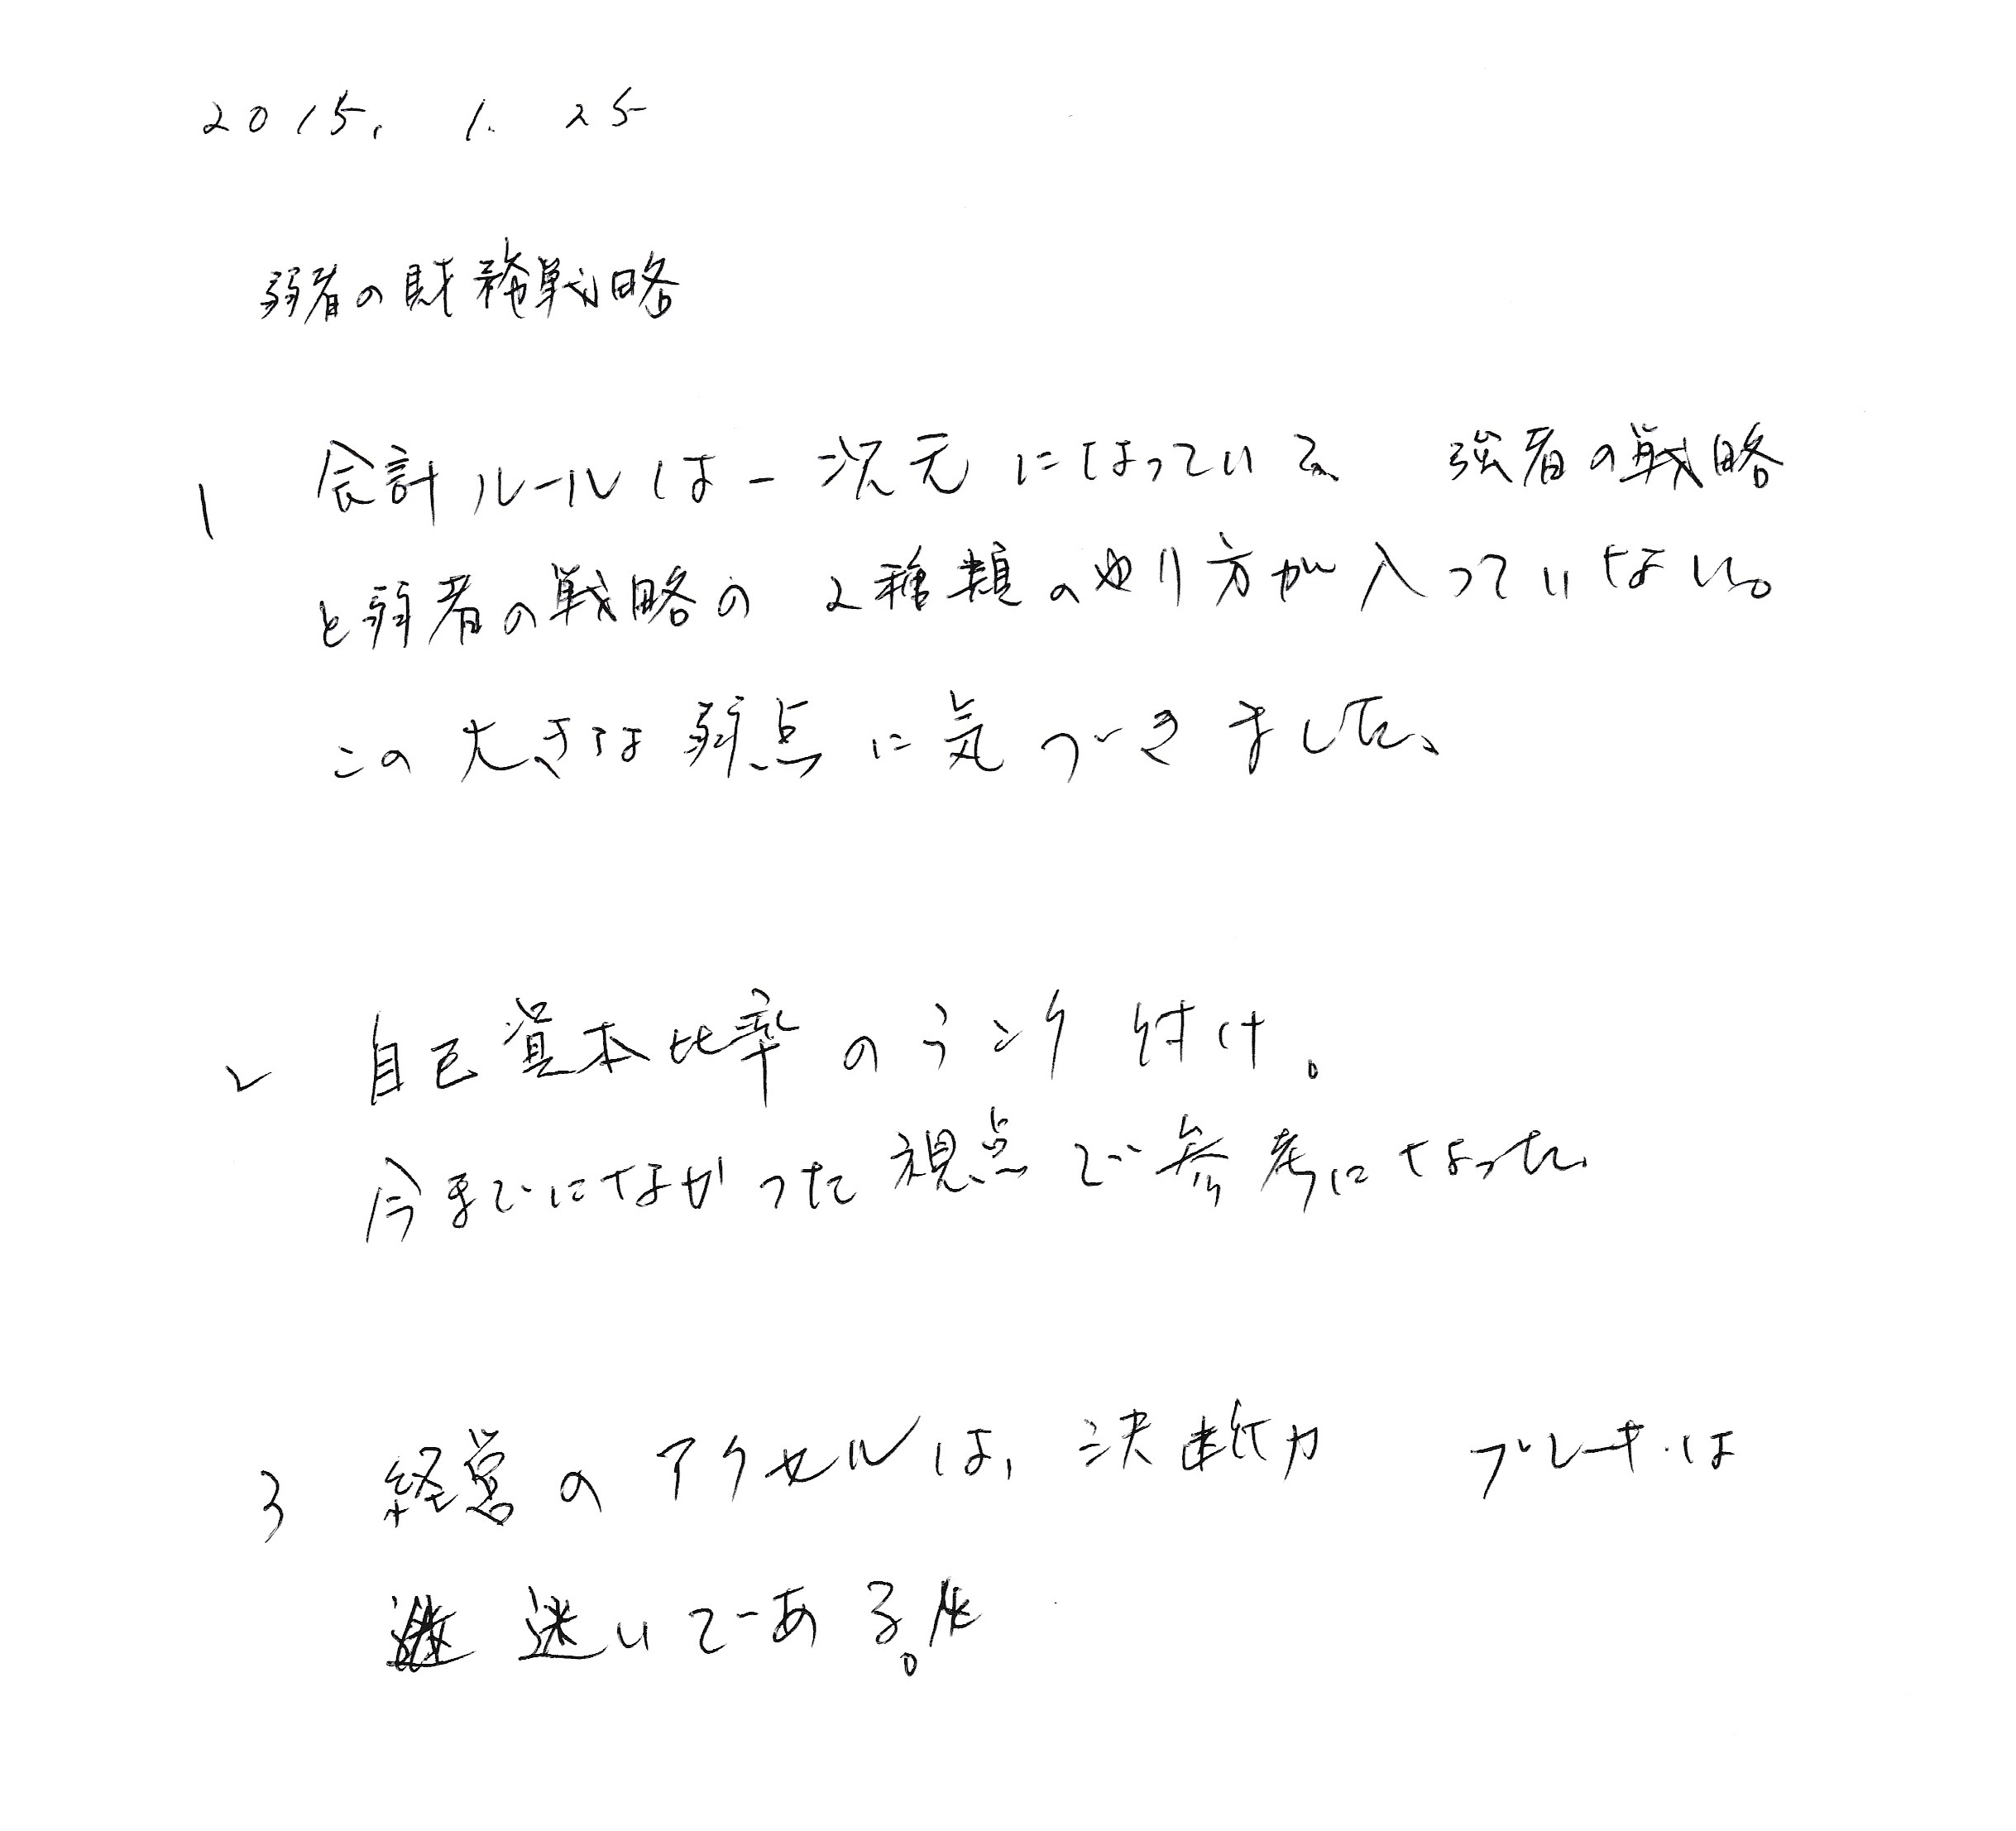 2015. 1. 25
弱者の財務戦略
1 会計ルールは一次元になっている 強者の戦略
と弱者の戦略の2種類のやり方が入っていない。
この大きな弱点に気づきました。
2 自己資本比率のランク付け。
今までになかった視点で参考になった。
3 経営のアクセルは、決断力 ブレーキは
迷いである。